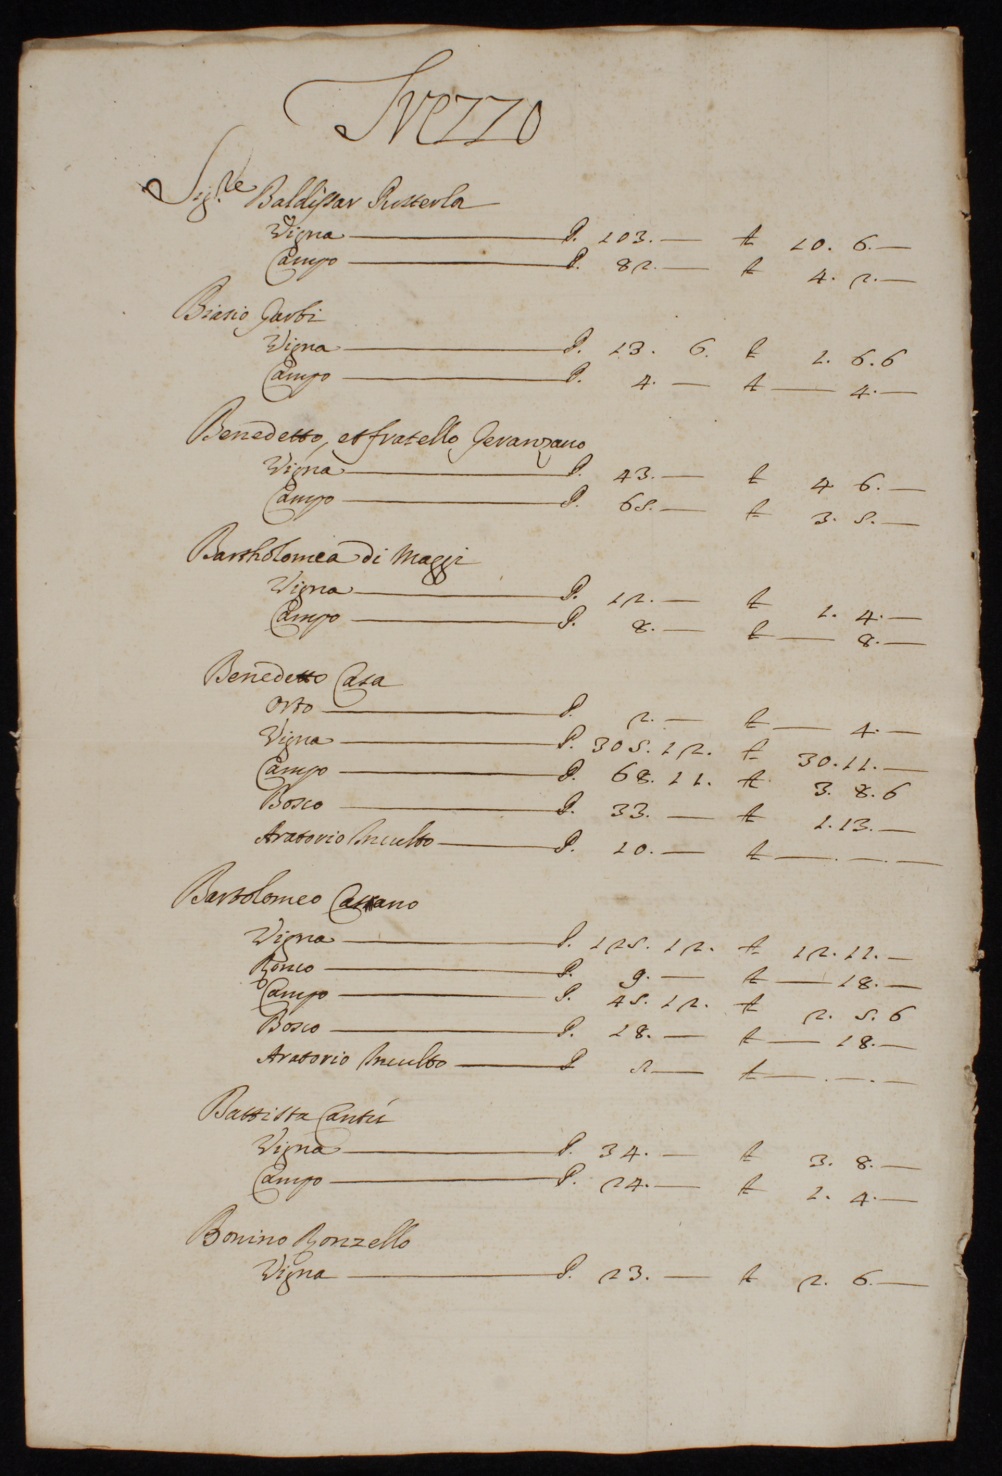 Trezzo
Sig.re Baldissar Pusterla
Vigna P. 103. — £ 10. 6. —
Campo P. 82. — £ 4. 2. —
Biasio Garbi
Vigna P. 13. 6. £ 1. 6. 6
Campo P. 4. — £ — 4. —
Benedetto, et fratello Geranzano
Vigna P. 43. — £ 4 6. —
Campo P. 65. — £ 3. 5. —
Bartholomea di Maggi
Vigna P. 12. — £ 1. 4. —
Campo P. 8. — £ — 8. —
Benedetto Casa
Orto P. 2. — £ — 4. —
Vigna P. 305. 12. £ 30. 11. —
Campo P. 68. 11. £ 3. 8. 6
Bosco P. 33. — £ 1. 13. —
Aratorio Inculto P. 10. — £ — . — . —
Bartolomeo Cassano
Vigna P. 125. 12. £ 12. 11. —
Ronco P. 9. — £ — 18. —
Campo P. 45. 12. £ 2. 5. 6
Bosco P. 18. — £ — 18. —
Aratorio Inculto P 2 — £ — . — . —
Battista Cantù
Vigna P. 34. — £ 3. 8. —
Campo P. 24. — £ 1. 4. —
Bonino Ronzello
Vigna P. 23. — £ 2. 6. —